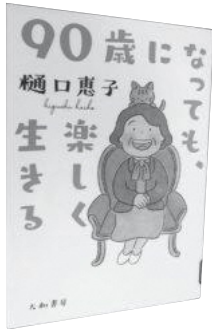 90歳に
なっても、
楽しく
生きる
樋口恵子
Higuchi Keiko
大和書房